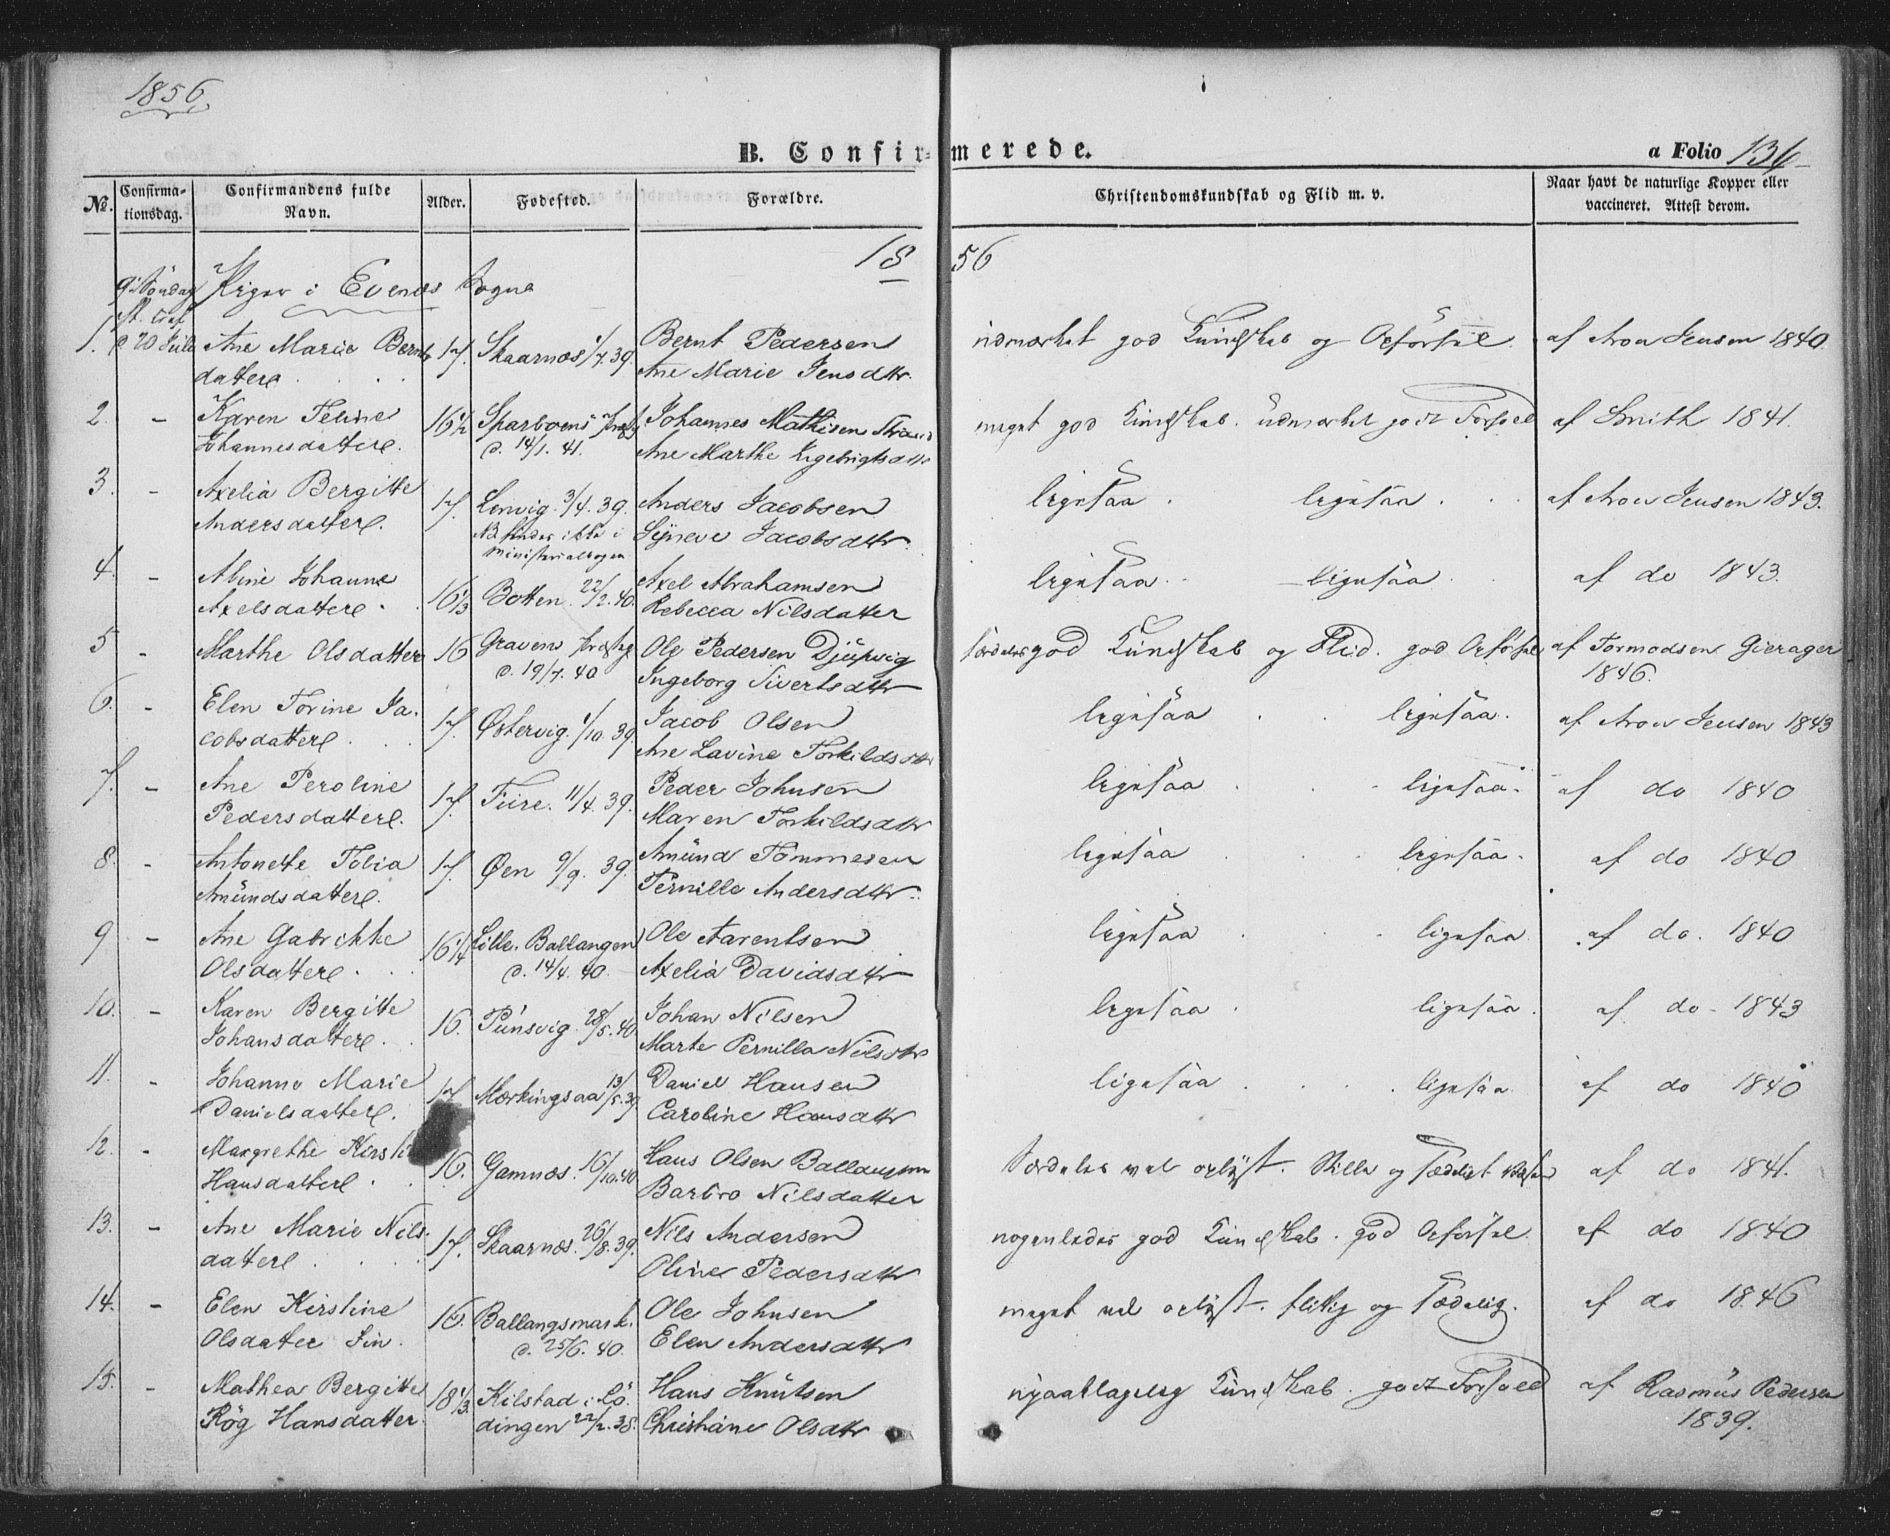 1856.
B. Confirmerede.
a Folio 136
No.
Confirmationsdag.
Confirmandens fulde Navn.
Alder.
Fødested.
Forældre.
Christendomskundskab og Flid m. v.
Naar havt de naturlige Kopper eller vaccineret. Attest derom.
1856
9de Søndag Piger i Evenes Sogn
d. 20 Juli
1. Ane Marie Bernts 17. Skaarnæs 1/7 39 Bernt Pedersen udmærket god Kundskab og Opførsel. af Aron Jensen 1840.
datter Ane Marie Jensdttr.
2. - Karen Feline 16 1/2 Sparboens Prstg Johannes Mathisen Strand meget god Kundskab. udmærket godt Forhold af Smith 1841.
Johannesdatter. d. 14/1. 41. Ane Marthe Ingebrigtsdttr
3. - Axelia Bergitte 17. Lenvig. 3/4. 39. Anders Jacobsen ligesaa. ligesaa. af Aron Jensen 1843.
Andersdatter. NB findes ikke i Synneve Jacobsdttr.
Ministerialbogen
4. - Abine Johanne Axel Abrahamsen ligesaa. ligesaa. af do 1843.
Axelsdatter. 16 1/3 Botten. 22/2. 40. Rebecca Nilsdatter
5 - Marthe Olsdatter 16 Gravens Prstg Ole Pedersen Djupvig særdeles god Kundskab og Flid. god Opførsel af Tormodsen Gierager
d. 19/7. 40 Ingeborg Sivertsdttr 1846.
6. - Elen Torine Ja- 17. Østervig. 1/10. 39. Jacob Olsen ligesaa. ligesaa. af Aron Jensen 1843
cobsdatter. Ane Lavine Torkildsdttr
7. - Ane Peroline 17. 11/4. 39. Peder Johnsen ligesaa. ligesaa. af do 1840
Pedersdatter. Maren Torkildsdttr
8. - Antonette Tobia 17. Øen 9/9. 39. Amund Tommesen ligesaa. ligesaa. af do 1840
Amundsdatter. Pernille Andersdttr.
9 - Ane Gabrikke 16 1/4 Lille Ballangen Ole Aarentsen ligesaa. ligesaa. af do. 1840
Olsdatter. d. 14/4. 40. Axelia Davidsdttr
10. - Karen Bergitte 16. Punsvig. 28/5. 40. Johan Nilsen ligesaa. ligesaa. af do. 1843
Johansdatter. Marte Pernilla Nilsdttr
11. - Johanne Marie 17 Mørkingsaa 13/5. 39 Daniel Hansen ligesaa. ligesaa. af do 1840
Danielsdatter. Caroline Hansdttr
12. - Margrethe Kirsti 16. Gamnæs. 16/10. 40 Hans Olsen Ballangen Særdeles vel oplyst. Stille og sædeligt Væsen af do 1841.
Hansdatter. Barbro Nilsdatter
13. - Ane Marie Nils- 17. Skaarnæs. 26/8. 39. Nils Andersen nogenledes god Kundskab. god Opførsel. af do 1840
datter. Oline Pedersdttr
14. - Elen Kirstine 16. Ballangsmark. Ole Johnsen meget vel oplyst. flittig og sædelig. af do 1846
Olsdatter Fin. d. 25/6. 40. Elen Andersdttr
15. - Mathea Bergitte 18 1/3 Kilstad i Lö- Hans Knutsen Kundskab. godt Forhold af Rasmus Pedersen
Røg Hansdatter. dingen 22/2. 38. Christiane Olsdttr 1839.